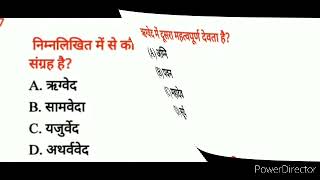 निम्नलिखित में से कौ
संग्रह है?
A. ऋग्वेद
B. सामवेदा
C. यजुर्वेद
D. अथर्ववेद
ऋग्वेद में दूसरा महत्वपूर्ण देवता है?
(A) अग्नि
(B) पवन
PowerDirector